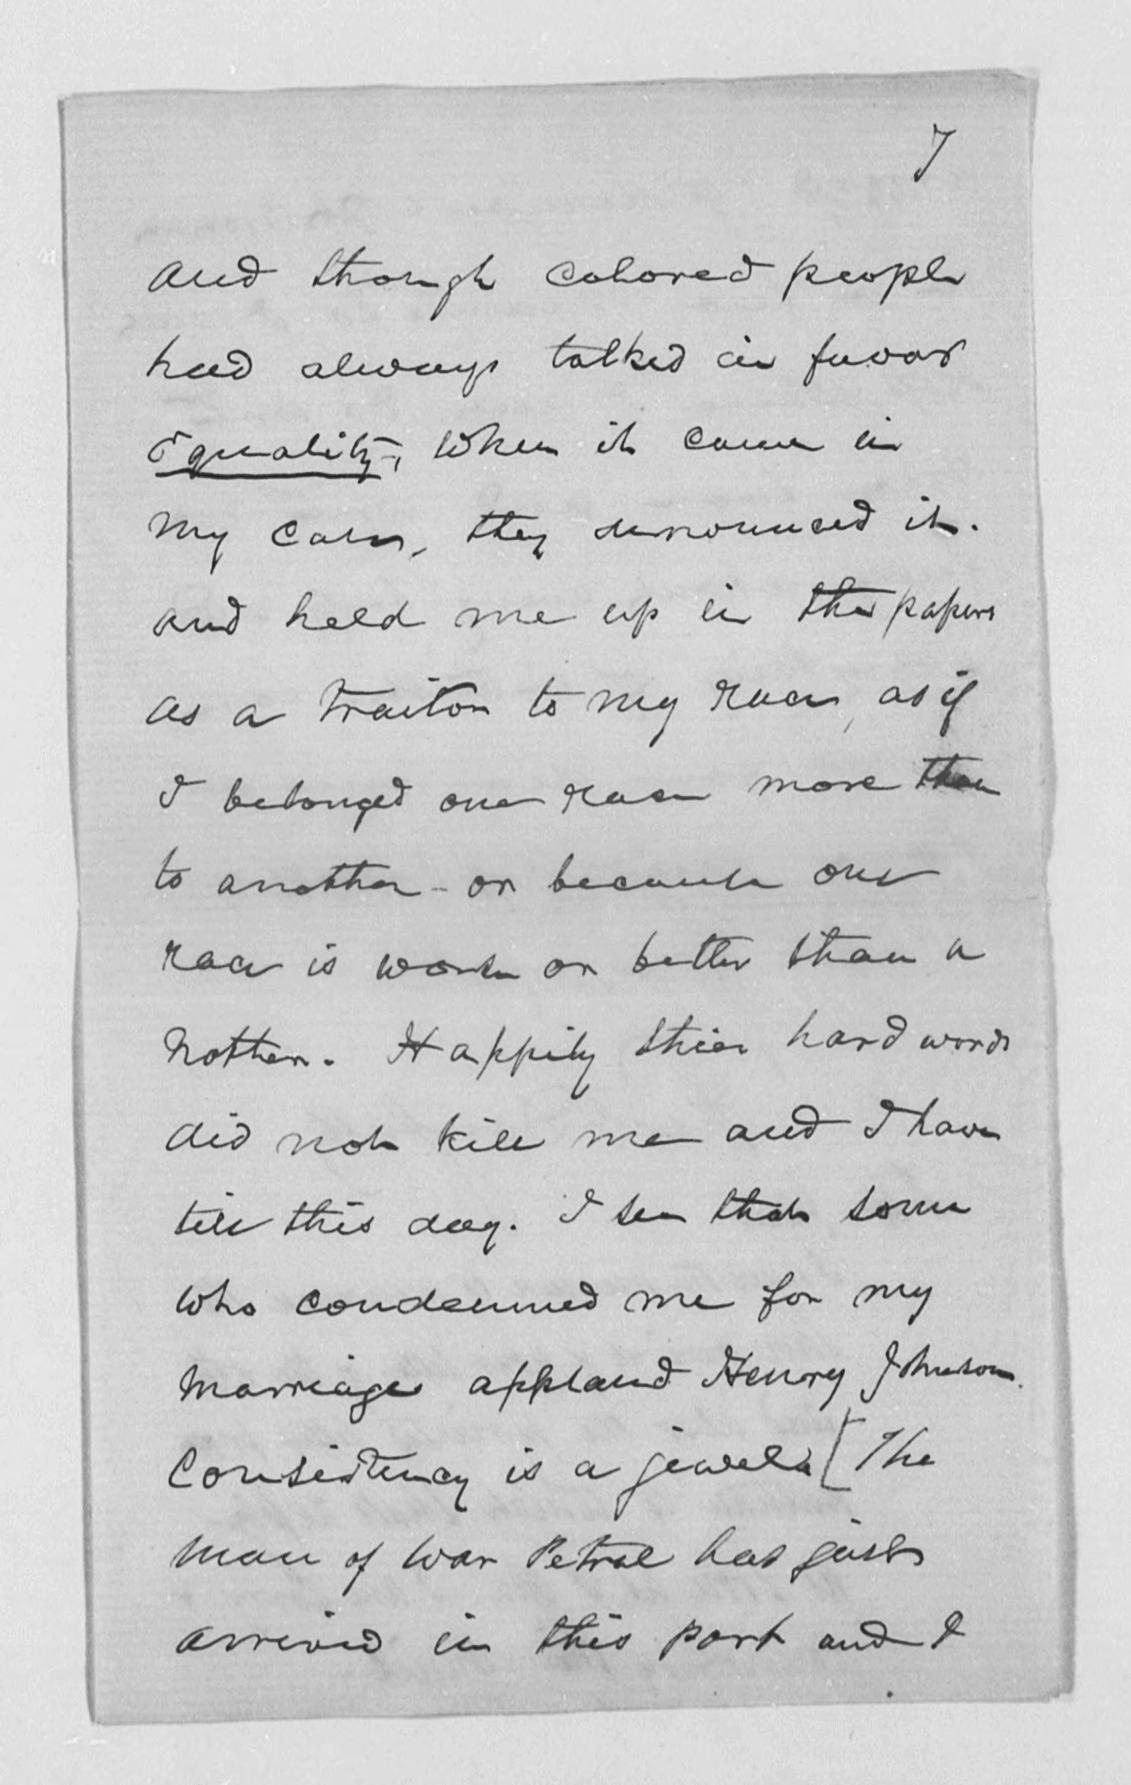 7
and though colored people
had always talked in favor
Equality, when it came in
my case, they denounced it.
and held me up in the papers
as a traitor to my race, as if
I belonged one race more than
to another - or because one
race is worse or better than a
nother. Happily thier hard words
did not kill me and I have
till this day. I see that some
who condemned me for my
marriage applaud Henry Johnson.
Consistency is a jewel. [The
man of war Petrel has just
arrived in this port and I